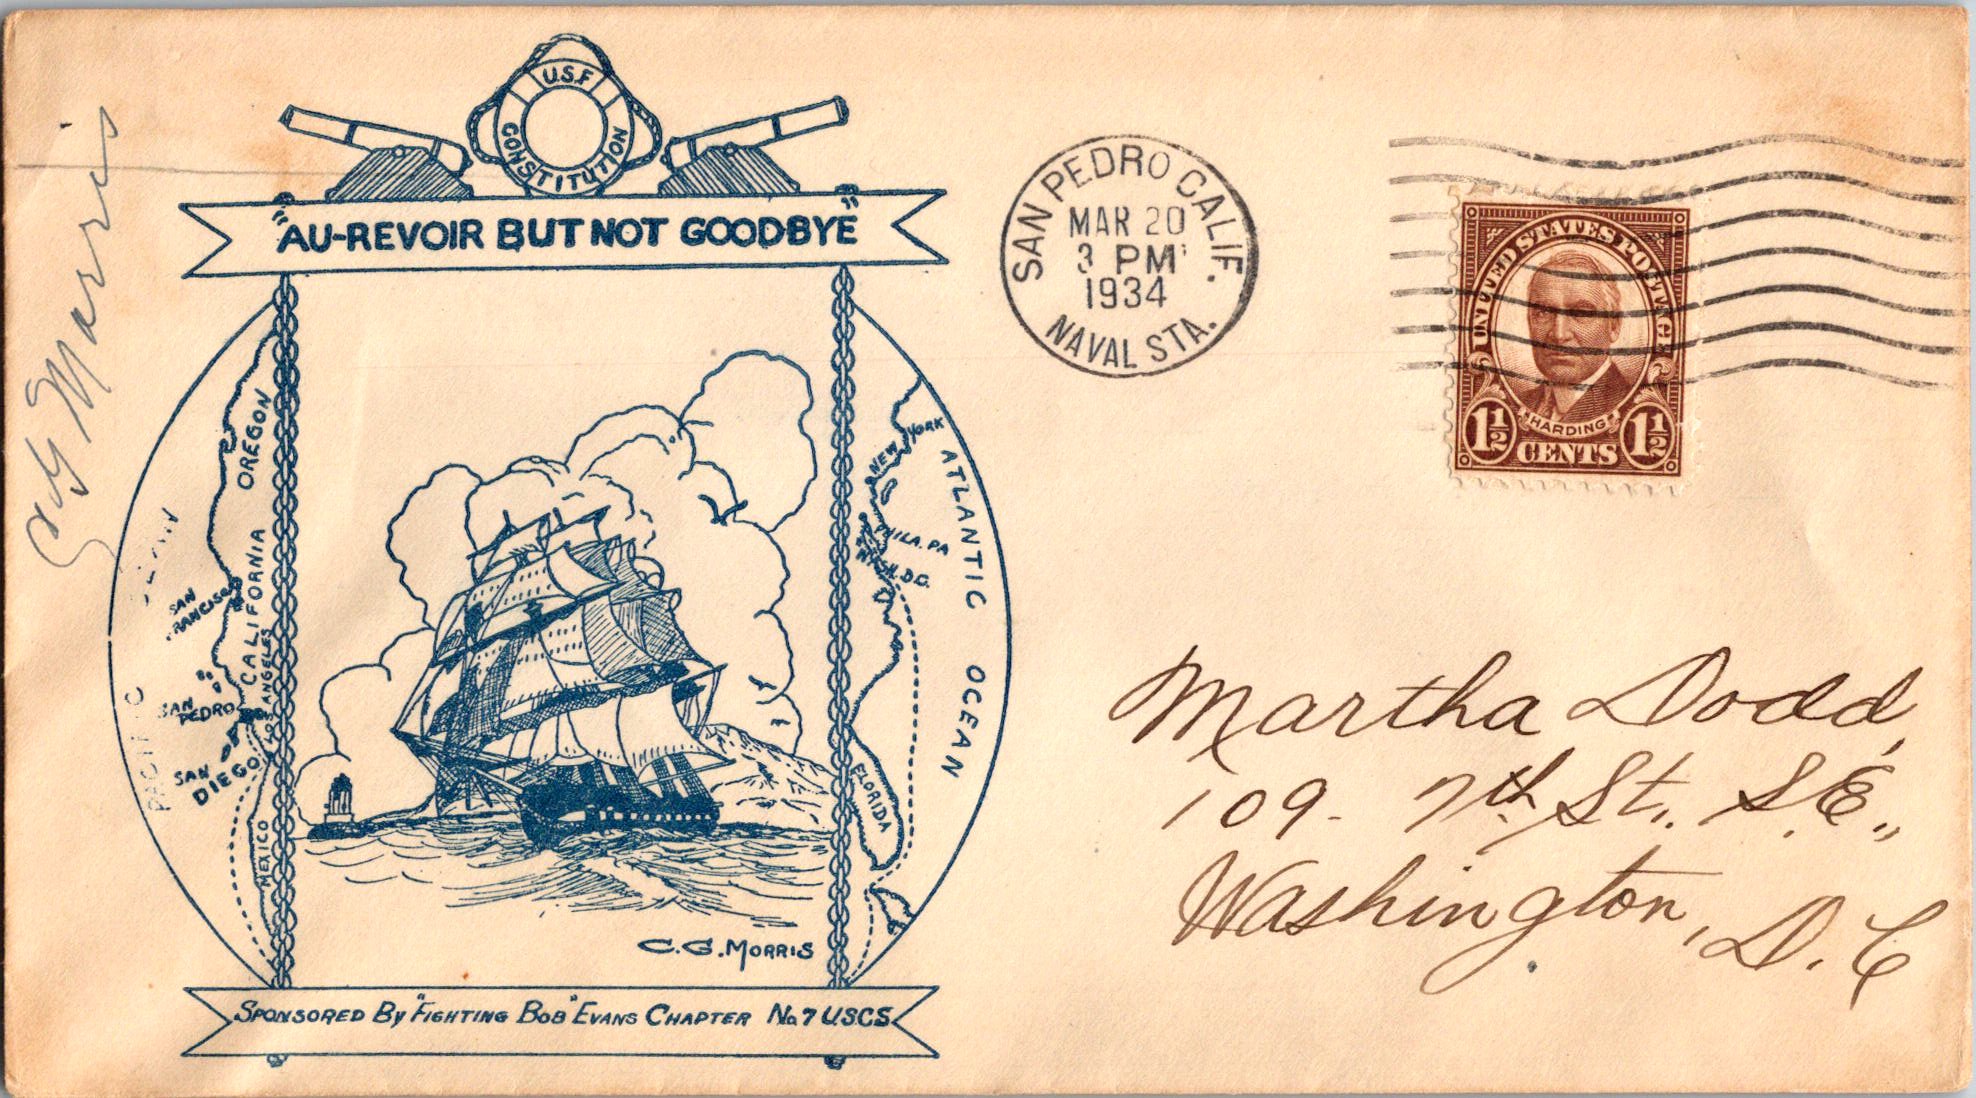 U.S.F
CONSTITUTION
"AU-REVOIR BUT NOT GOOD-BYE"
OREGON
CALIFORNIA
SAN
LOS ANGELES
SAN
PEDRO
SAN
DIEGO
MEXICO
NEW YORK
PHILA. PA
WASH. D.C.
ATLANTIC OCEAN
FLORIDA
C. G. MORRIS
SPONSORED BY "FIGHTING BOB" EVANS CHAPTER No 7 U.S.C.S.
Morris
SAN PEDRO CALIF.
MAR 20
3 PM
1934
NAVAL STA.
UNITED STATES POSTAGE
HARDING
1½ 1½
CENTS
Martha Dodd,
109 - 7th St., S.E.,
Washington, D. C